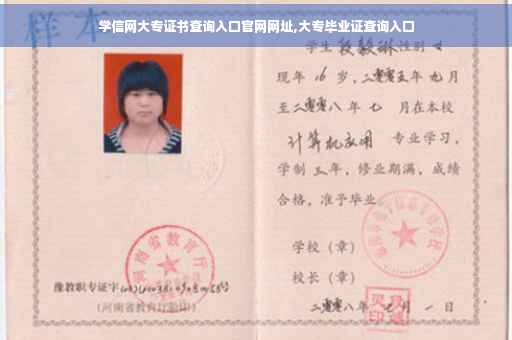 学信网大专证书查询入口官网网址,大专毕业证查询入口
样本
学生段毅琳性别
现年16岁,二零零五年九月
至二零零八年七月在本校
计算机应用 专业学习,
学制三年,修业期满,成绩
合格,准予毕业
学校(章)
校长(章)
二零零八年七月一日
河南省教育厅
豫教职专证字
(河南省教育厅验印)